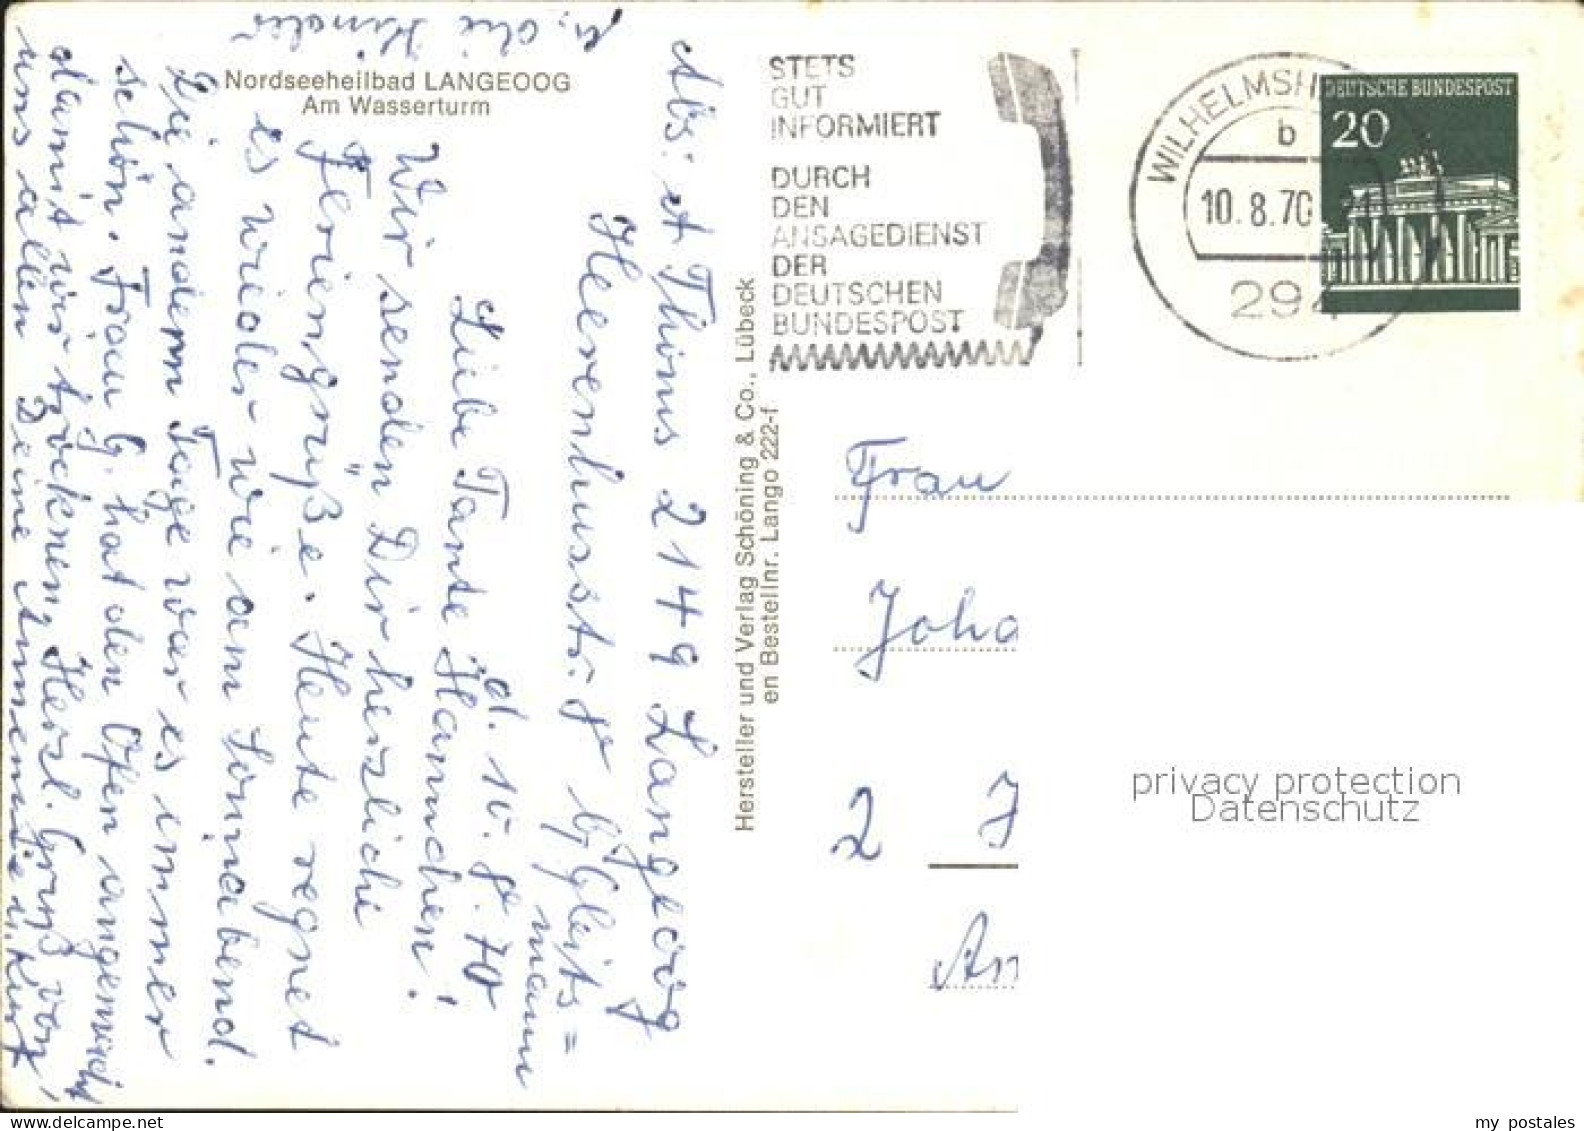 Nordseeheilbad LANGEOOG
Am Wasserturm
STETS
GUT
INFORMIERT
DURCH
DEN
ANSAGEDIENST
DER
DEUTSCHEN
BUNDESPOST
WILHELMSH
b
10.8.70
294
DEUTSCHE BUNDESPOST
20
Hersteller und Verlag Schöning & Co., Lübeck
en Bestellnr. Lango 222-f
Abs: A. Thoms 2149 Langeoog
Heerenhusstr. 8 b/Gleits=
mann
d. 10. 8. 70
Liebe Tante Hannchen!
Wir senden Dir herzliche
Feriengrüße. Heute regnet
es wieder wie am Sonnabend.
Die andern Tage war es immer
schön. Frau G. hat den Ofen angemacht
damit wir trocknen. Herzl. Gruß von
uns allen Deine Annemarie u. Kurt
u. die Kinder
Frau
Joha
2
An
privacy protection
Datenschutz
my postales